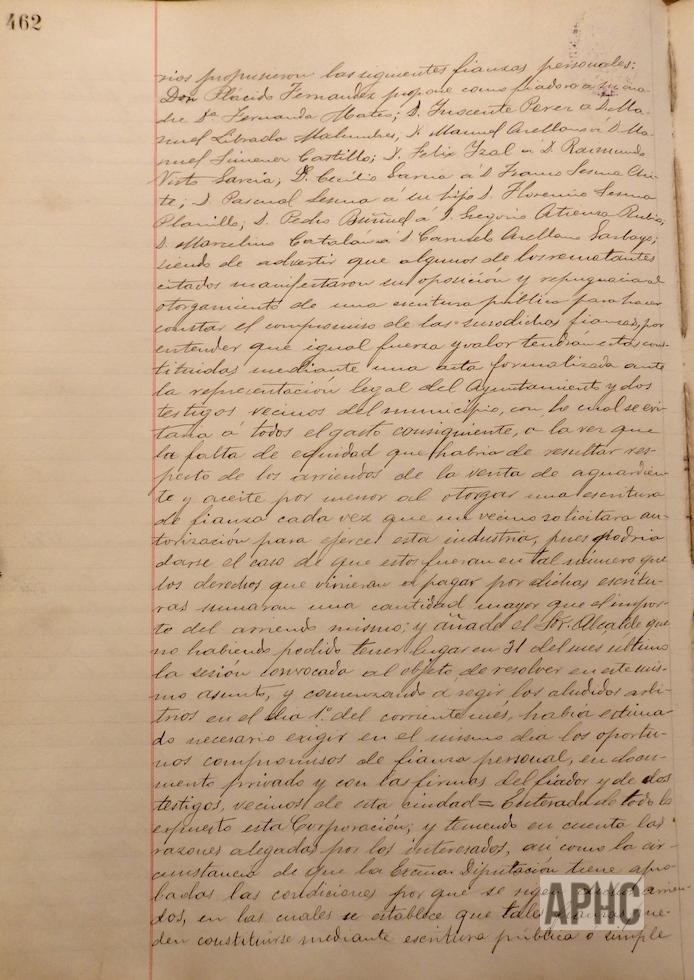 462
rios propusieron las siguientes fianzas personales:
Don Plácido Fernandez propone como fiadora a su ma-
dre Dª Fernanda Mateo; D. Inocente Perez a D. Ma-
nuel Librada Malumbres, D. Manuel Arellano á D. Ma-
nuel Simenez Castillo; D. Felix Yzal á D. Raimundo
Garcia; D. Cecilio Garcia a D. Franco Sesma
te; D. Pascual Sesma á su hijo D. Florencio Sesma
Planillo; D. Pedro Buñuel á D. Gregorio Atienza Rubio;
D. Marcelino Catalán á D. Carmelo Arellano
siendo de advertir que algunos de los rematantes
citados manifestaron su oposición y repugnancia al
otorgamiento de una escritura pública para hacer
constar el compromiso de las susodichas fianzas, por
entender que igual fuerza y valor tendrian estas cons-
tituidas mediante una acta formalizada ante
la representación legal del Ayuntamiento y dos
testigos vecinos del municipio, con lo cual se evi-
taria á todos el gasto consiguiente, a la vez que
la falta de equidad que habria de resultar res-
pecto de los arriendos de la venta de aguardien-
te y aceite por menor al otorgar una escritura
de fianza cada vez que un vecino solicitara au-
torización para ejercer esta industria, pues podria
darse el caso de que estos fueran en tal número que
los derechos que vinieran a pagar por dichas escritu-
ras sumaran una cantidad mayor que el impor-
te del arriendo mismo; y añade el Sor. Alcalde que
no habiendo podido tener lugar en 31 del mes último
la sesión convocada al objeto de resolver en este mis-
mo asunto, y comenzando a regir los aludidos arbi-
trios en el dia 1º del corriente més, habia estima-
do necesario exigir en el mismo dia los oportu-
nos compromisos de fianza personal, en docu-
mento privado y con las firmas del fiador y de dos
testigos, vecinos de esta ciudad = Enterada de todo lo
expuesto esta Corporación, y temendo en cuenta las
razones alegadas por los interesados, asi como la cir-
cunstancia de que la Excma Diputación tiene apro-
badas las condiciones por que se rigen dichos arrien-
dos, en las cuales se establece que tales fianzas pue-
den constituirse mediante escritura pública o simple
APHC